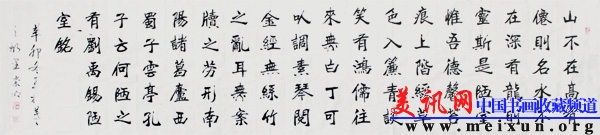 山不在高有
僊則名水不
在深有龍則
靈斯是陋室
惟吾德馨苔
痕上階綠草
色入簾青談
笑有鴻儒往
來無白丁可
以調素琴閱
金經無絲竹
之亂耳無案
牘之勞形南
陽諸葛廬西
蜀子雲亭孔
子云何陋之
有劉禹錫陋
室銘
辛卯冬
美讯网 中国书画收藏频道
www.meixun.org